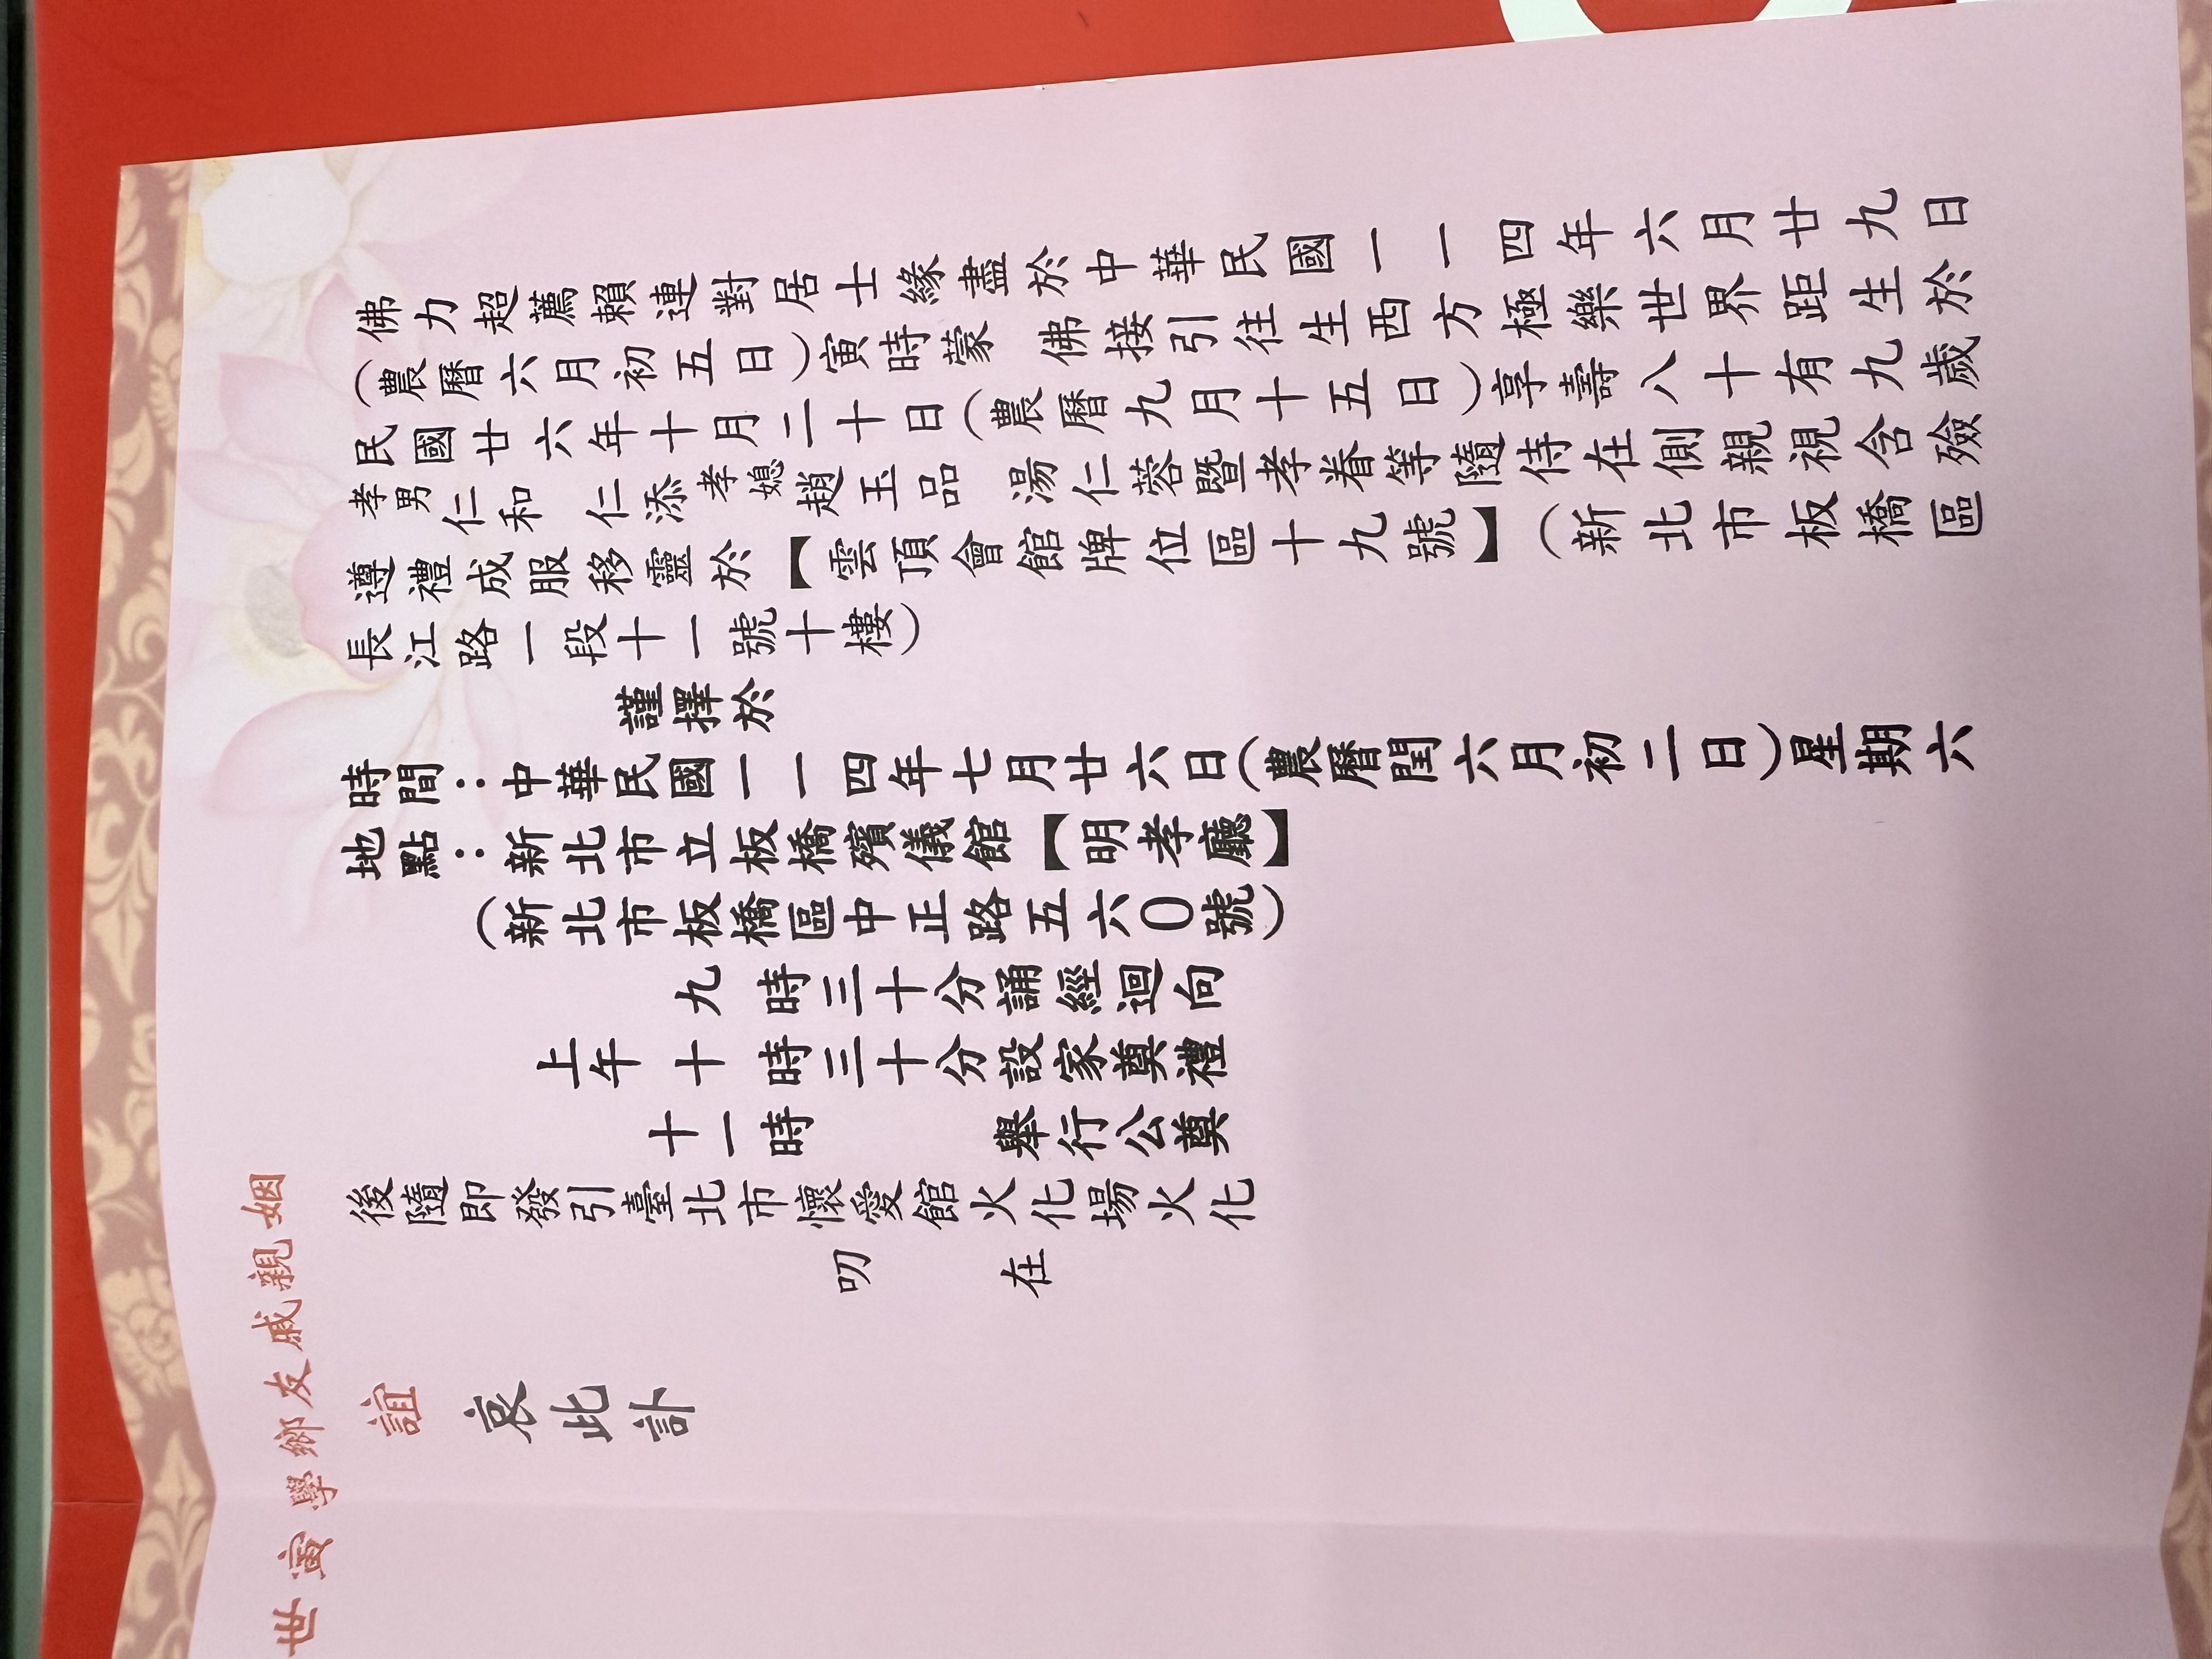 佛力超薦賴連對居士緣盡於中華民國一一四年六月廿九日
(農曆六月初五日)寅時蒙 佛接引往生西方極樂世界距生於
民國廿六年十月二十日(農曆九月十五日)享壽八十有九歲
孝男仁和 仁添 孝媳趙玉品 湯仁蓉暨孝眷等隨侍在側親視含殮
遵禮成服移靈於【雲頂會館牌位區十九號】 (新北市板橋區
長江路一段十一號十樓)
謹擇於
時間:中華民國一一四年七月廿六日(農曆閏六月初二日)星期六
地點:新北市立板橋殯儀館【明孝廳】
(新北市板橋區中正路五六〇號)
九時三十分誦經迴向
上午 十時三十分設家奠禮
十一時 舉行公奠
後隨即發引臺北市懷愛館火化場火化
叨 在
姻親戚友鄉學寅世
誼
哀此訃